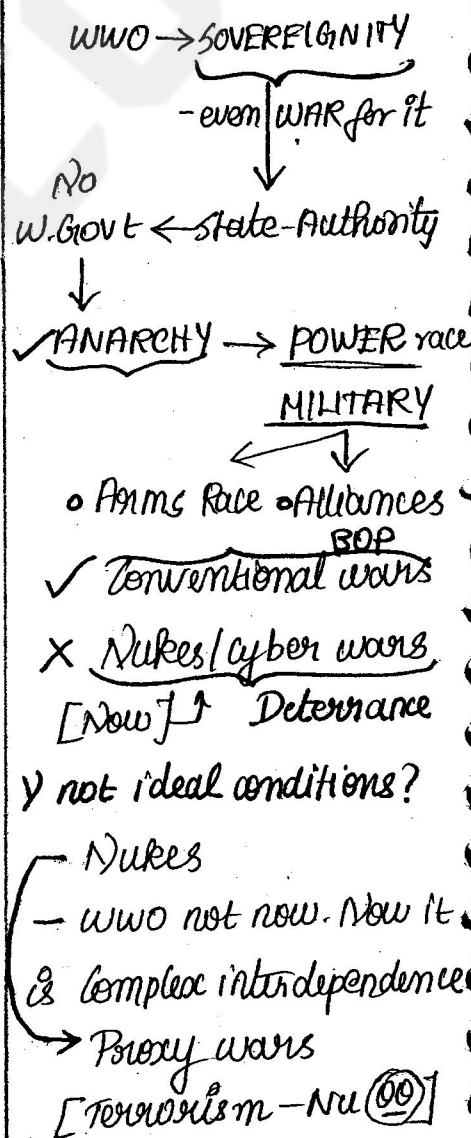 WWO → SOVEREIGNITY
- even WAR for it
No
W.Govt ← State-Authority
✓ ANARCHY → POWER race
MILITARY
• Arms Race • Alliances
BOP
✓ Conventional wars
X Nukes/cyber wars
[Now] Deterrance
Y not ideal conditions?
- Nukes
- WWO not now. Now it
is Complex interdependence
→ Proxy wars
[Terrorism - Nu